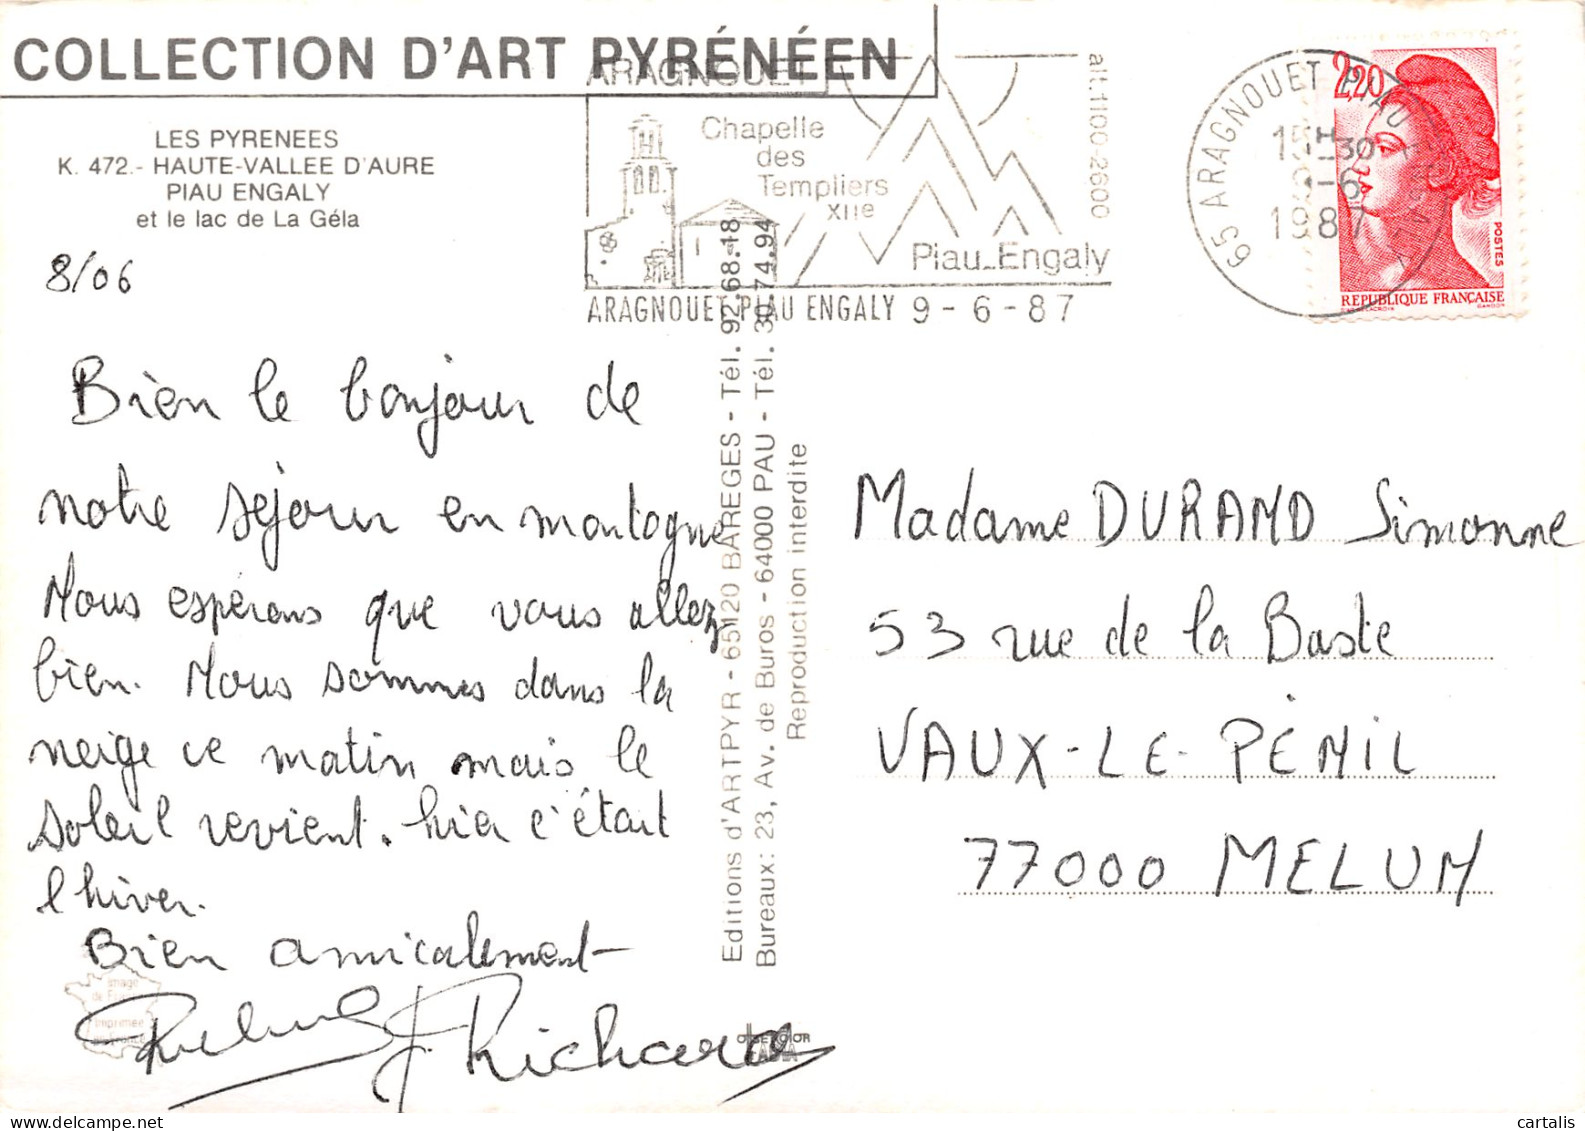 COLLECTION D'ART PYRÉNÉEN
LES PYRENEES
K. 472.- HAUTE-VALLEE D'AURE
PIAU ENGALY
et le lac de La Géla
ARAGNOUET
Chapelle
des
Templiers
XIIe
alt.1100-2600
Piau-Engaly
ARAGNOUET PIAU ENGALY 9-6-87
65 ARAGNOUET PIAU
15H30
9-6
1987
2,20
POSTES
REPUBLIQUE FRANÇAISE
8/06
Bien le bonjour de
notre séjour en montagne
Nous espérons que vous allez
bien. Nous sommes dans la
neige ce matin mais le
soleil revient. hier c'était
l'hiver.
Bien amicalement
Richard
Editions d'ARTPYR - 65120 BAREGES - Tél. 92.68.18
Bureaux: 23, Av. de Buros - 64000 PAU - Tél. 30.74.94
Reproduction interdite
Madame DURAND Simonne
53 rue de la Baste
VAUX-LE-PÉNIL
77000 MELUN
image
de France
imprimée
en France
cartalis